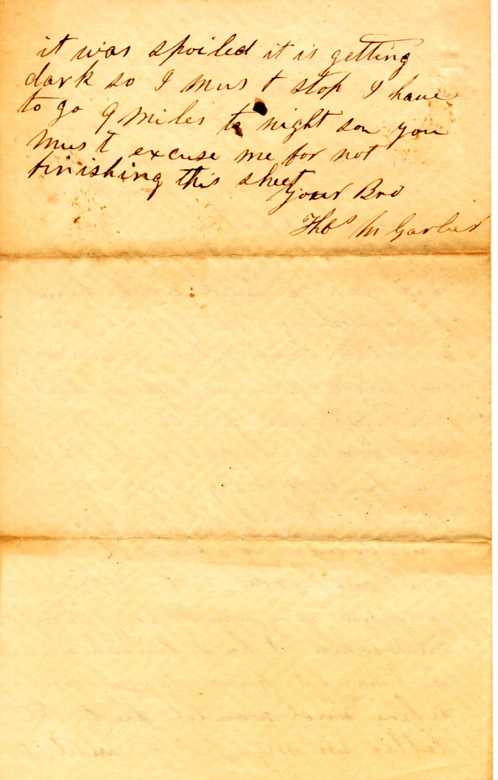 it was spoiled it is getting
dark so I must stop I have
to go 9 miles to night son you
must excuse me for not
finishing this sheet
your Bro
Thos M Garber